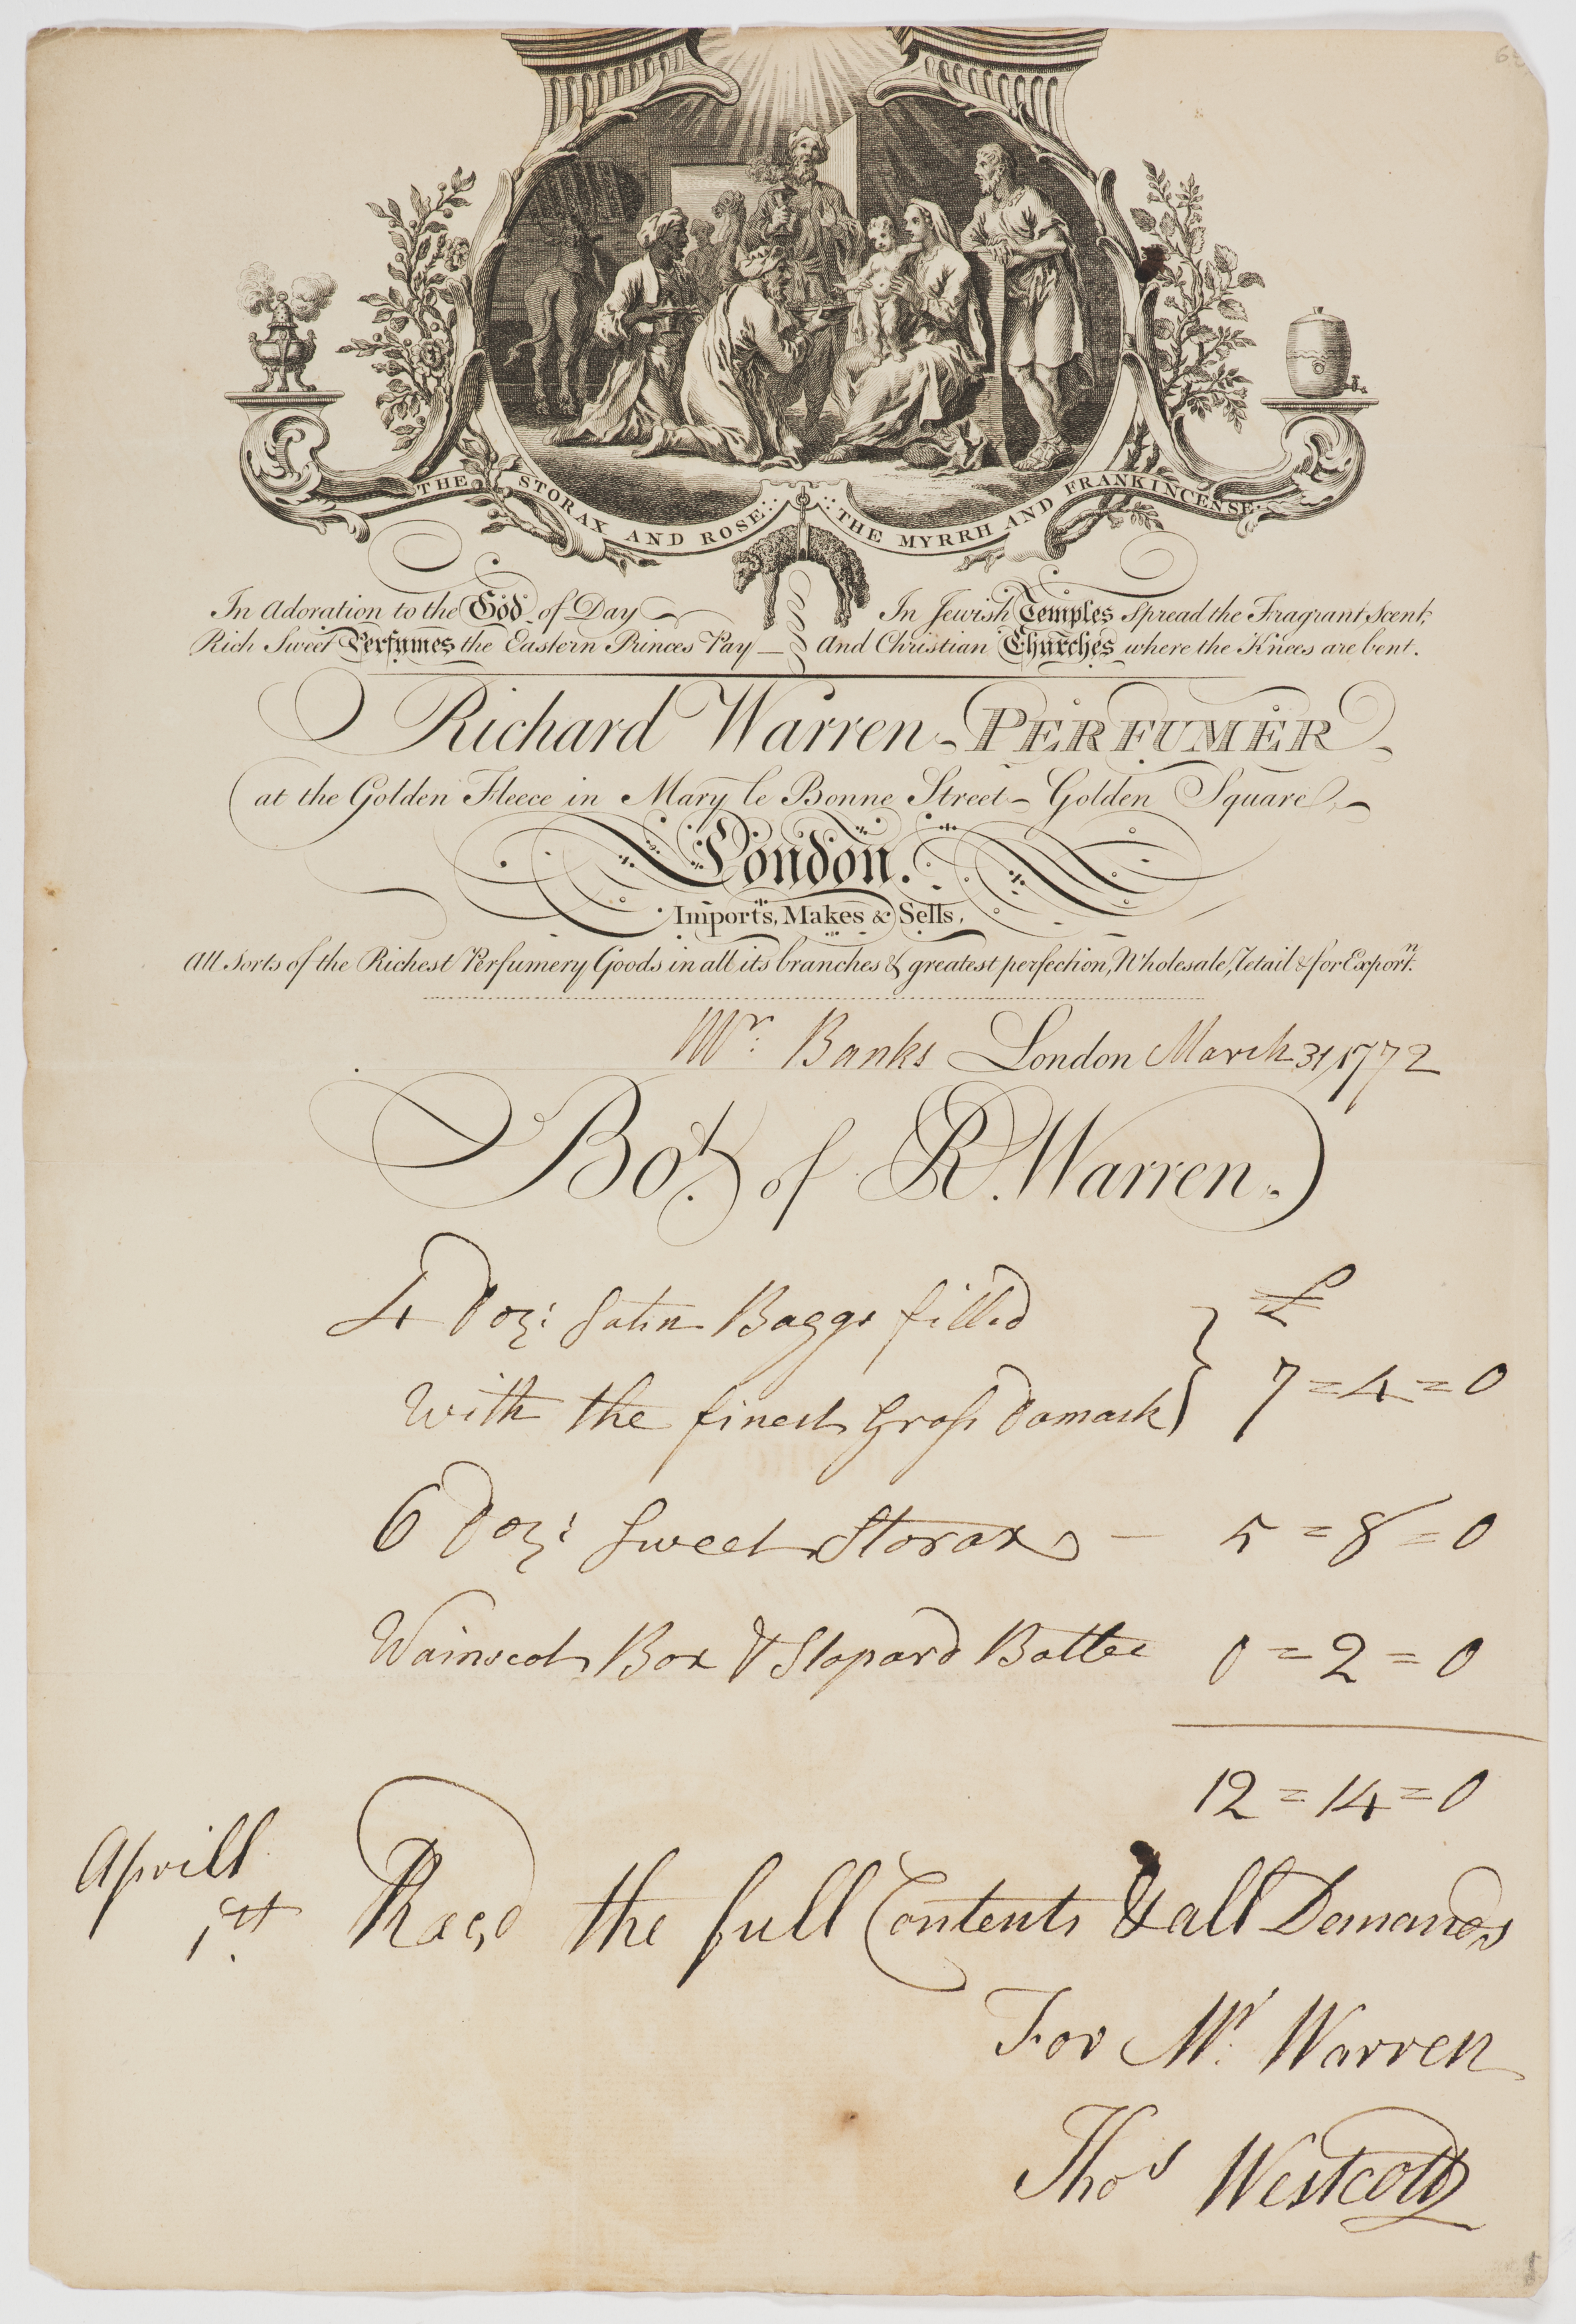 THE STORAX AND ROSE:: ::THE MYRRH AND FRANKINCENSE
In Adoration to the God of Day
Rich Sweet Perfumes the Eastern Princes Pay
In Jewish Temples spread the Fragrant Scent,
And Christian Churches where the Knees are bent.
Richard Warren - PERFUMER
at the Golden Fleece in Mary le Bonne Street - Golden Square,
London.
Imports, Makes & Sells,
All Sorts of the Richest Perfumery Goods in all its branches & greatest perfection, Wholesale, Retail & for Exportn.
Mr. Banks London March 31, 1772
Bot. of R. Warren.
4 Doz: Satin Baggs filled £
with the finest Gross Damask } 7 = 4 = 0
6 Doz: Sweet Storax — 5 = 8 = 0
Wainscot Box & Stopard Bottle 0 = 2 = 0
12 = 14 = 0
Aprill
1st. the full Contents & all Demands
For Mr. Warren
Thos Westcott